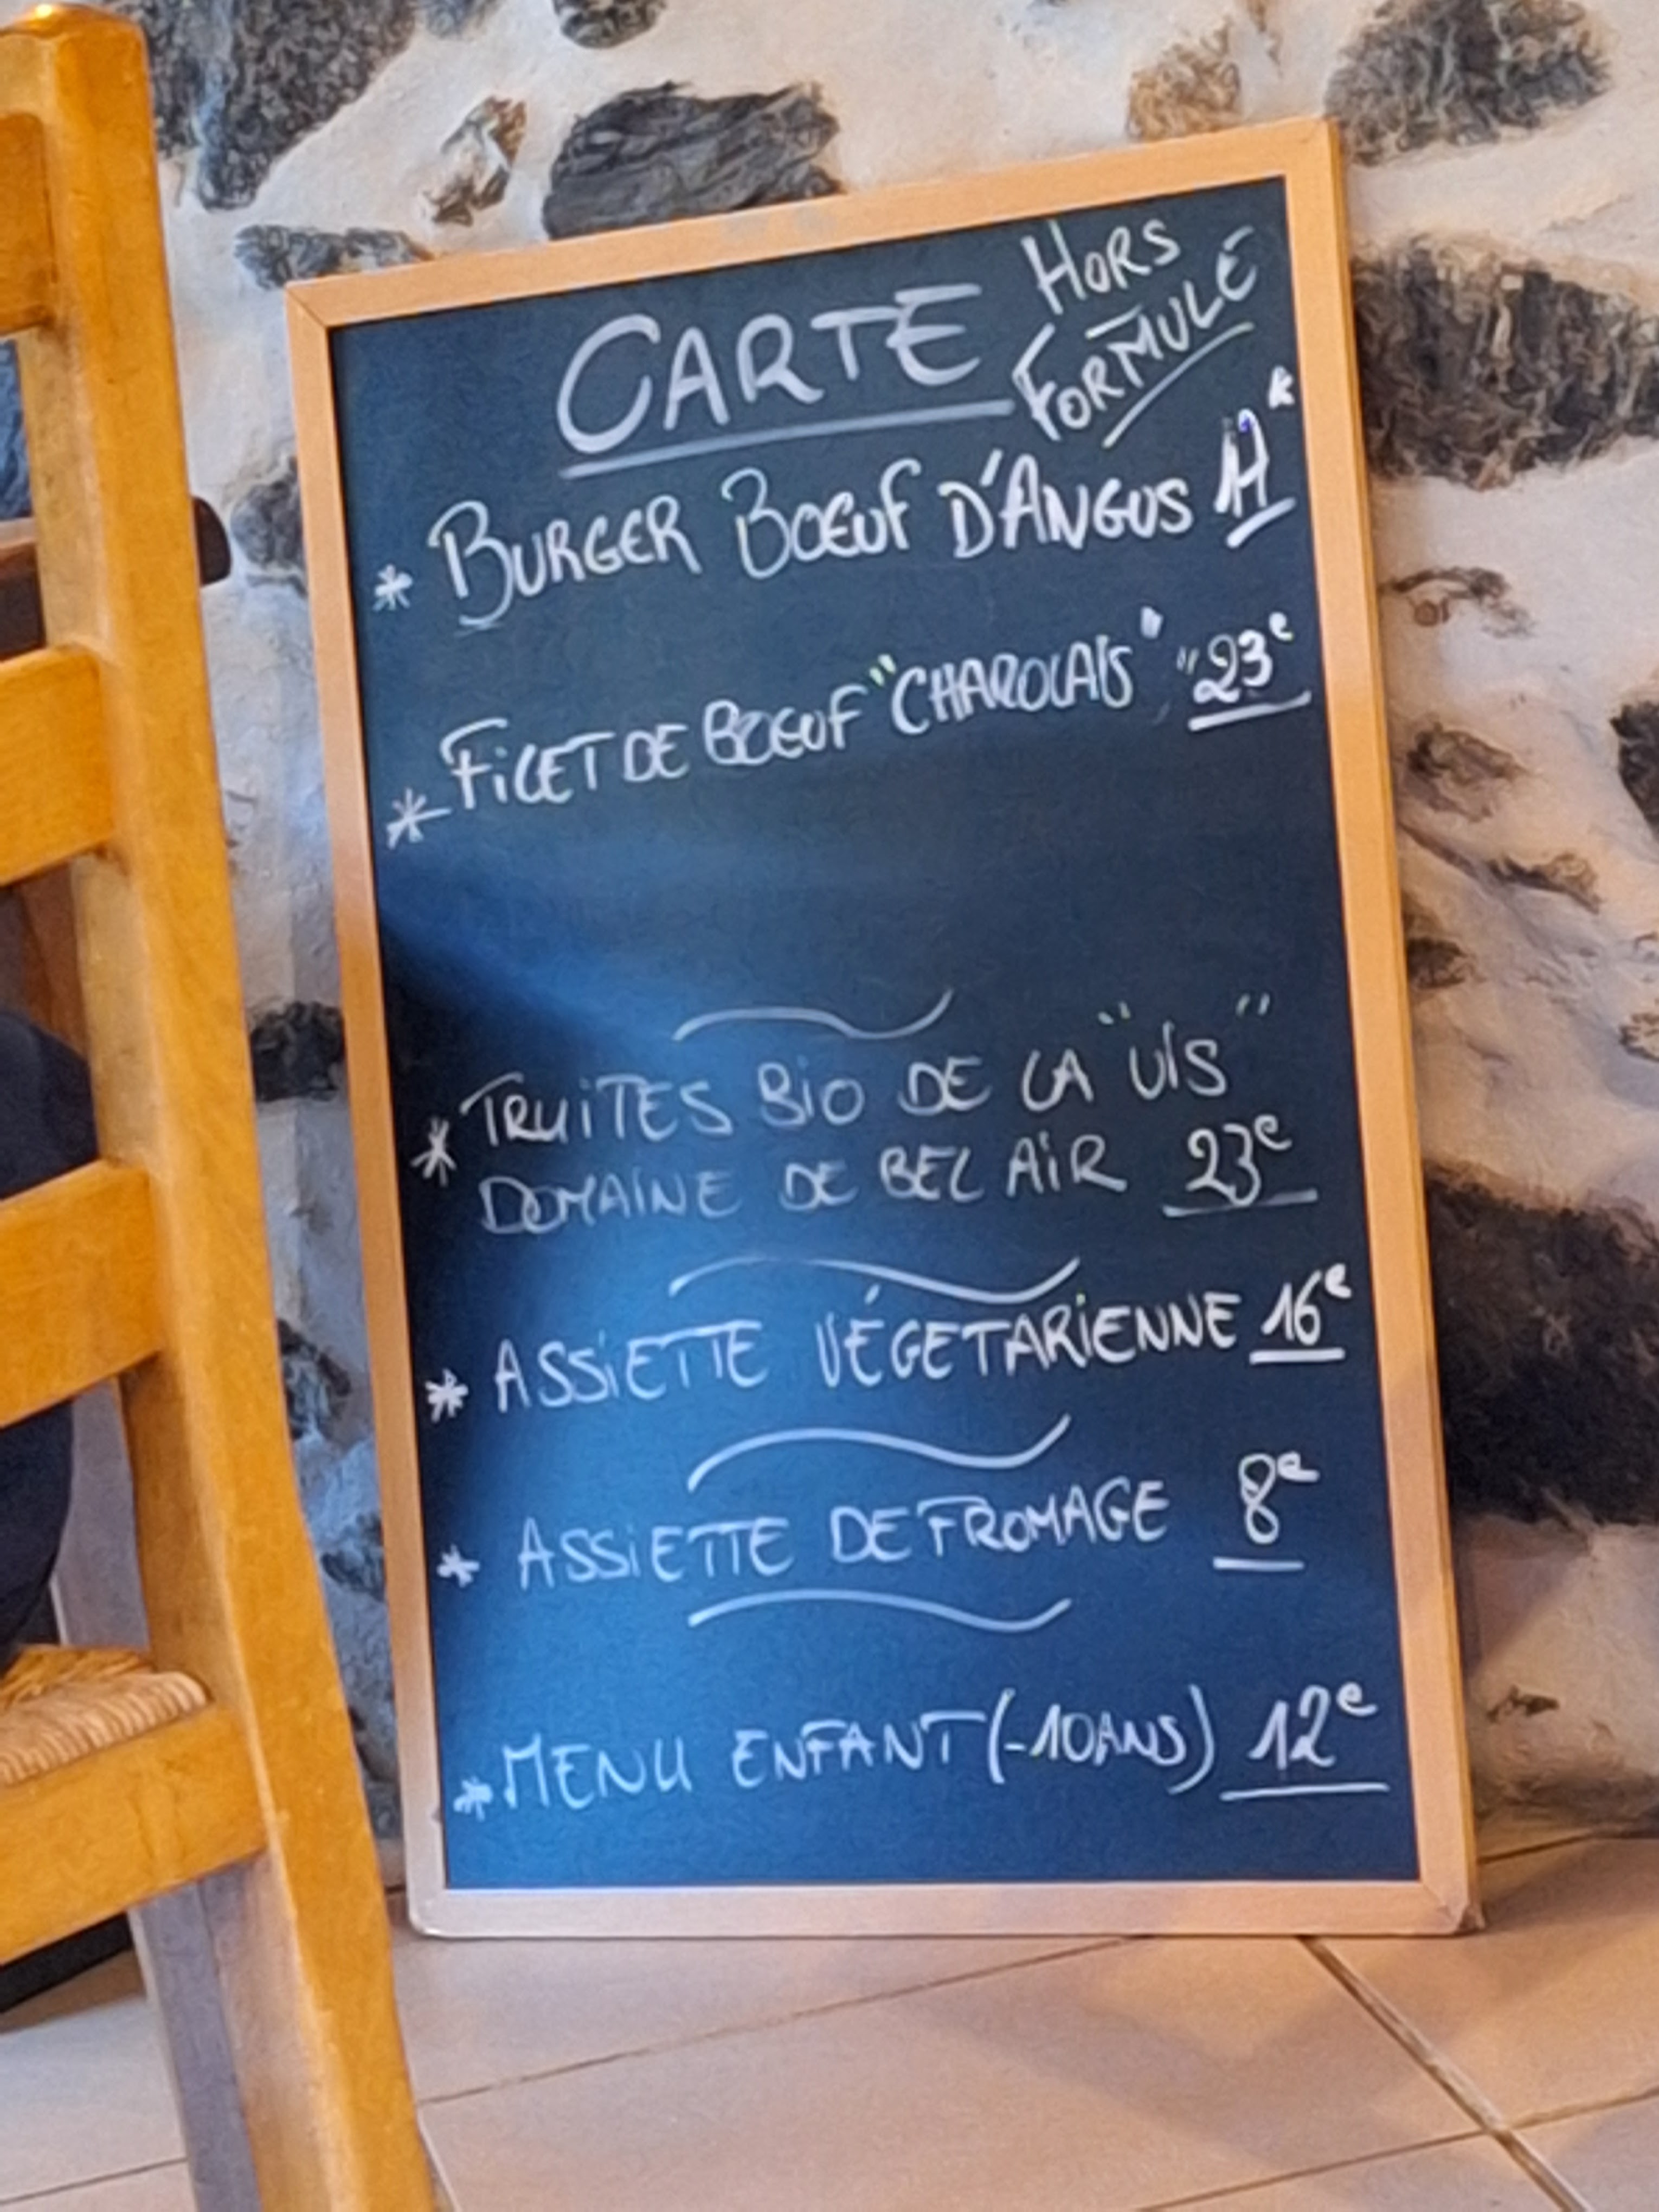 CARTE HORS FORMULE
* BURGER BŒUF D'ANGUS
* FILET DE BŒUF "CHAROLAIS" 23€
* TRUITES BIO DE LA "VIS"
DOMAINE DE BEL AIR 23€
* ASSIETTE VÉGETARIENNE 16€
* ASSIETTE DE FROMAGE 8€
* MENU ENFANT (-10ANS) 12€